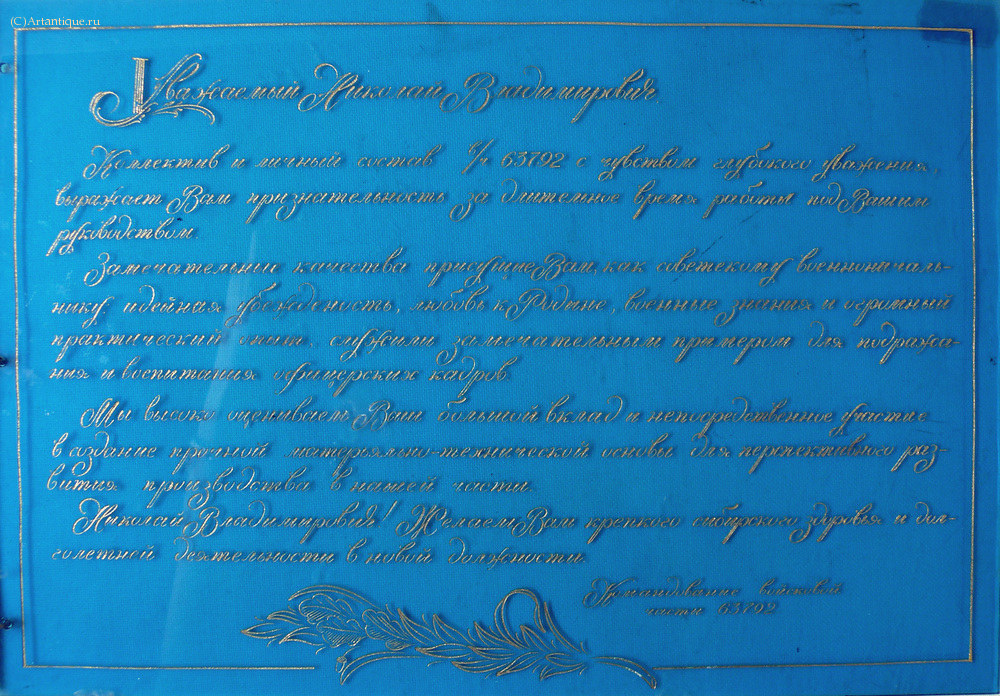 (C)Artantique.ru
Уважаемый Николай Владимирович,
Коллектив и личный состав в/ч 63792 с чувством глубокого уважения,
выражает Вам признательность за длительное время работы под Вашим
руководством.
Замечательные качества присущие Вам, как советскому военноначаль-
нику: идейная убежденость, любовь к Родине, военные знания и огромный
практический опыт, служили замечательным примером для подража-
ния и воспитания офицерских кадров.
Мы высоко оцениваем Ваш большой вклад и непосредственное участие
в создание прочной матерьяльно-технической основы для перспективного раз-
вития производства в нашей части.
Николай Владимирович! Желаем Вам крепкого сибирского здоровья и дол-
голетней деятельности в новой должности.
Командование войсковой
части 63792